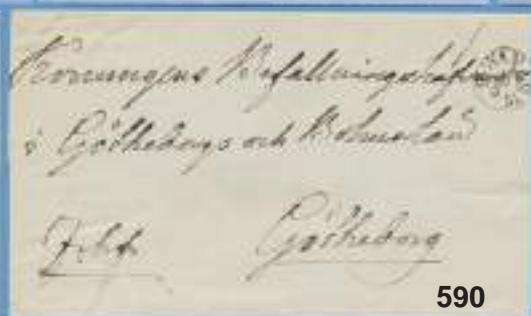 Konungens Befallningshafvande
i Götheborgs och Bohus Län
Götheborg
590